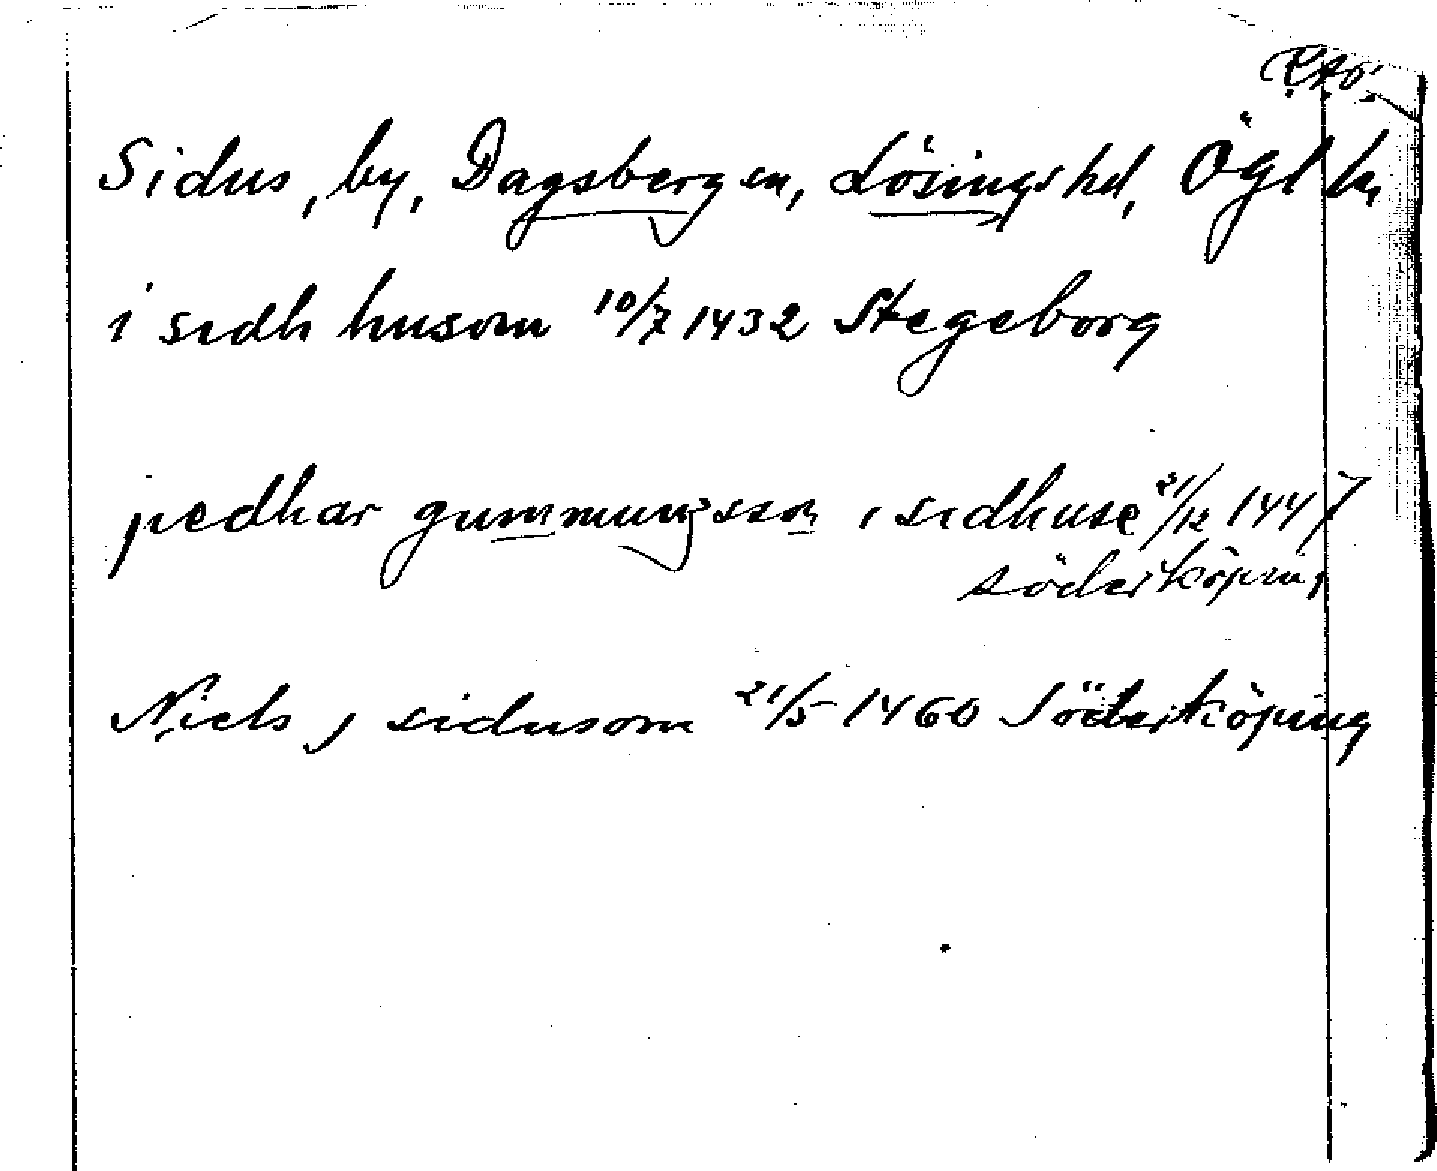 Sidus, by, Dagsberg sn, Lösings hd, Ögl ln
i sidh husom 10/7 1432 Stegeborg
pedhar gummungsson i sidhuse 21/12 1447
Söderköping
Niels j sidusom 21/5 1460 Söderköping